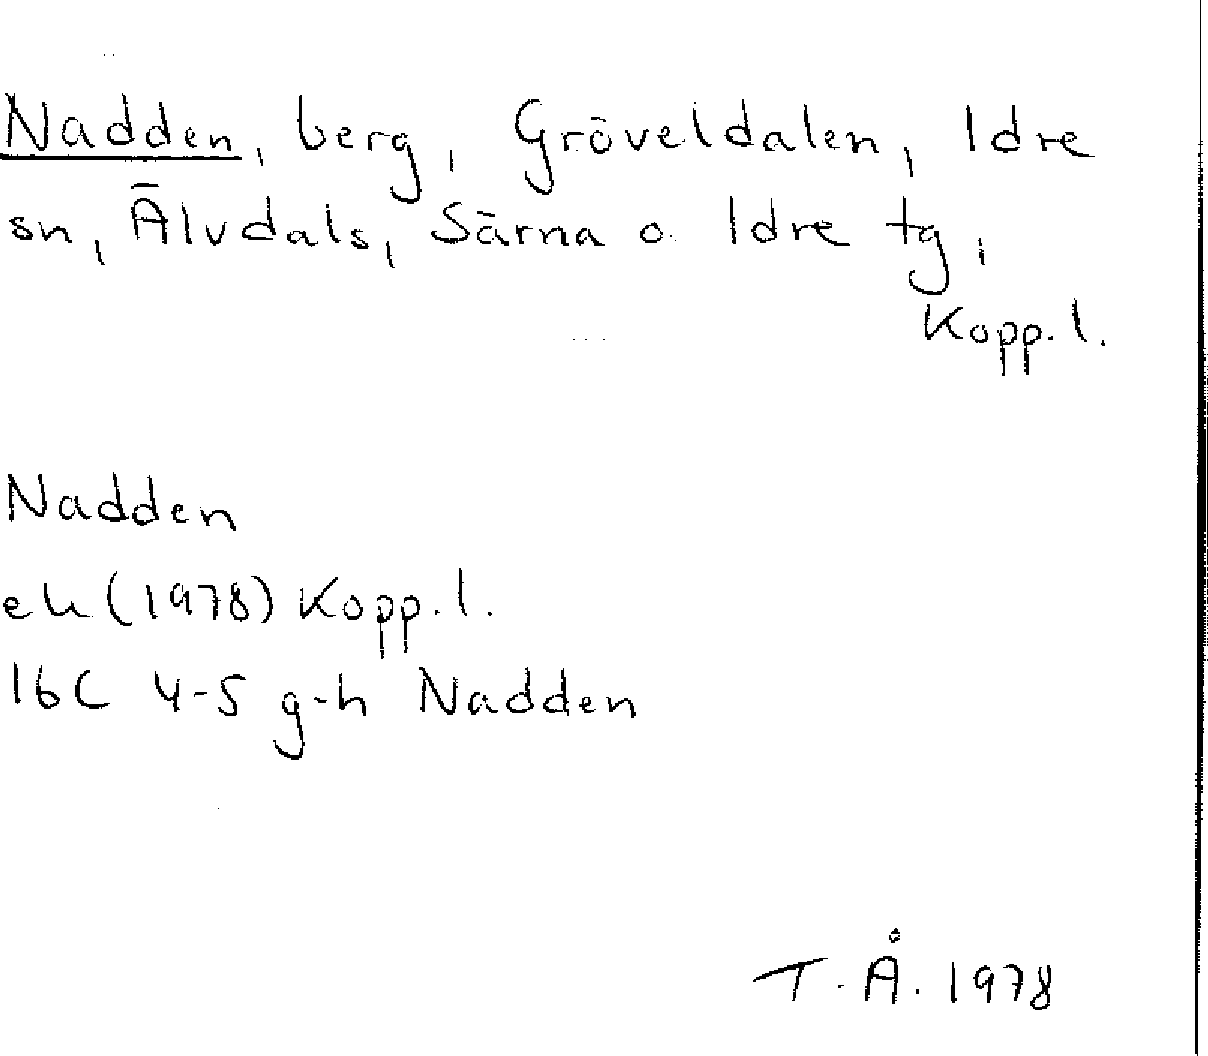 Nadden, berg, Gröveldalen, Idre
sn, Älvdals, Särna o. Idre tg,
Kopp. l.
Nadden
ek (1978) Kopp. l.
16C 4-5 g-h Nadden
T. Å. 1978